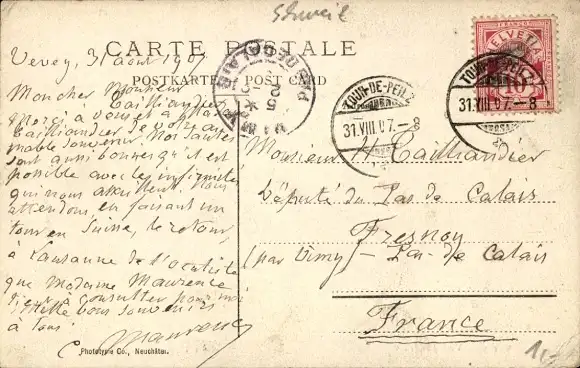 Schweiz
CARTE POSTALE
POSTKARTE POST CARD
Vevey, 31 août 1907
Mon cher Monsieur
Tailliandier
Merci à vous et à Mme
Tailliandier de votre ai
mable souvenir. Nos santés
sont aussi bonnes qu'il est
possible avec les infirmités
qui nous accablent. Nous
attendons, en faisant un
tour en Suisse, le retour,
à Lausanne de l'oculiste
que Madame Maurence
consulter pour moi
Mille bons souvenirs
à tous
Maurence
Phototypie Co., Neuchâtel
Monsieur H. Tailliandier
Député du Pas de Calais
Fresnoy
(par Vimy – Pas-de Calais
France
HELVETIA
10
TOUR-DE-PEILZ
31.VIII.07.-8
TOUR-DE-PEILZ
31.VIII.07.-8
PAS-DE-CALAIS
VIMY